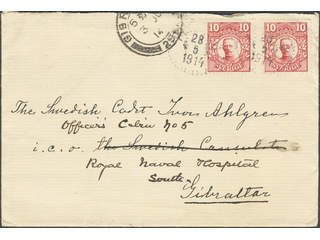 10 10
28
5
1914
SVERIGE SVERIGE
The Swedish Cadet Ivar Ahlgren
Officer's Cabin No 5
i. c. o. the Swedish Consulate
Royal Naval Hospital
South
Gibraltar